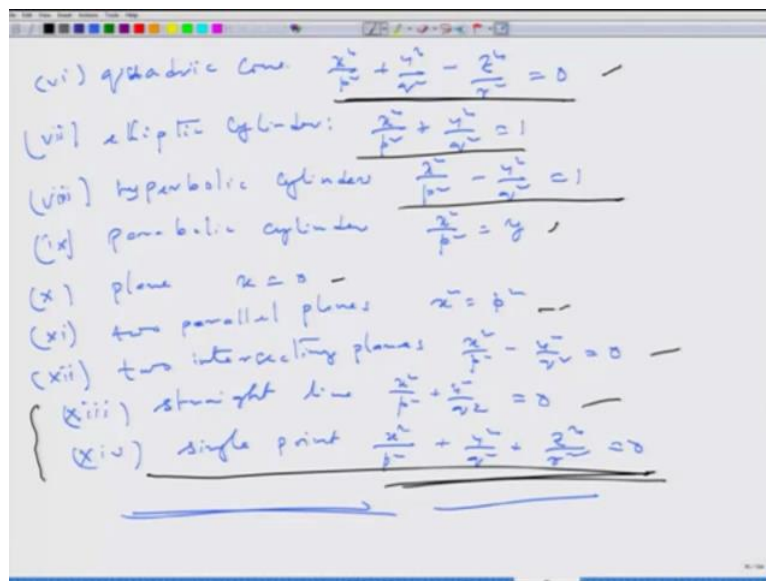 (vi) quadric cone x²/p² + y²/q² - z²/r² = 0
(vii) elliptic cylinder: x²/p² + y²/q² = 1
(viii) hyperbolic cylinder x²/p² - y²/q² = 1
(ix) parabolic cylinder x²/p² = y
(x) plane x = 0
(xi) two parallel planes x² = p²
(xii) two intersecting planes x²/p² - y²/q² = 0
(xiii) straight line x²/p² + y²/q² = 0
(xiv) single point x²/p² + y²/q² + z²/r² = 0